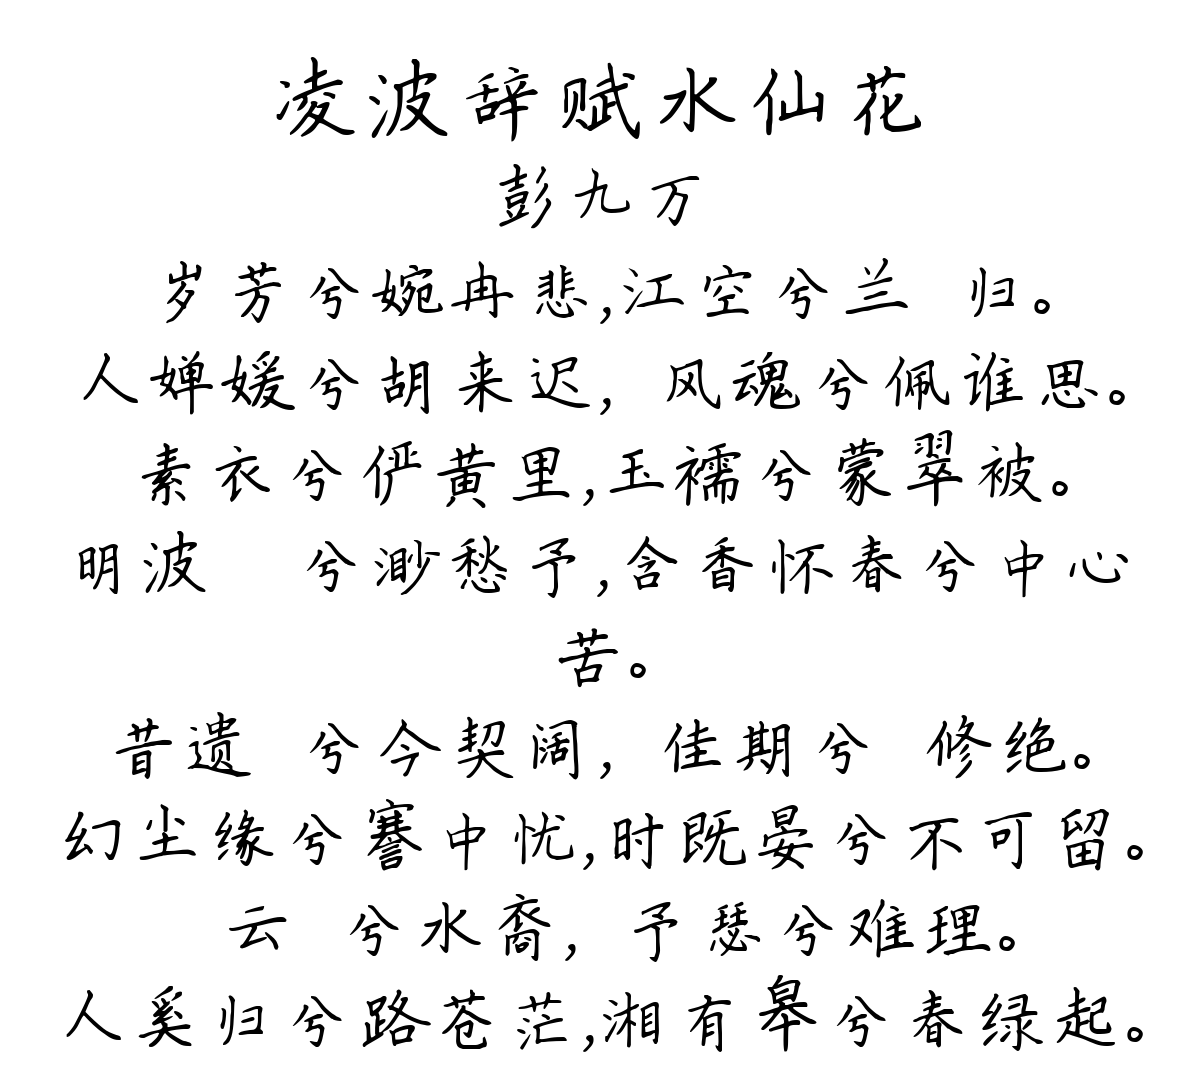 凌波辞赋水仙花
彭九万
岁芳兮婉冉悲,江空兮兰 归。
人婵媛兮胡来迟,风魂兮佩谁思。
素衣兮俨黄里,玉襦兮蒙翠被。
明波 兮渺愁予,含香怀春兮中心
苦。
昔遗 兮今契阔,佳期兮 修绝。
幻尘缘兮謇中忧,时既晏兮不可留。
云 兮水裔,予瑟兮难理。
人奚归兮路苍茫,湘有皋兮春绿起。